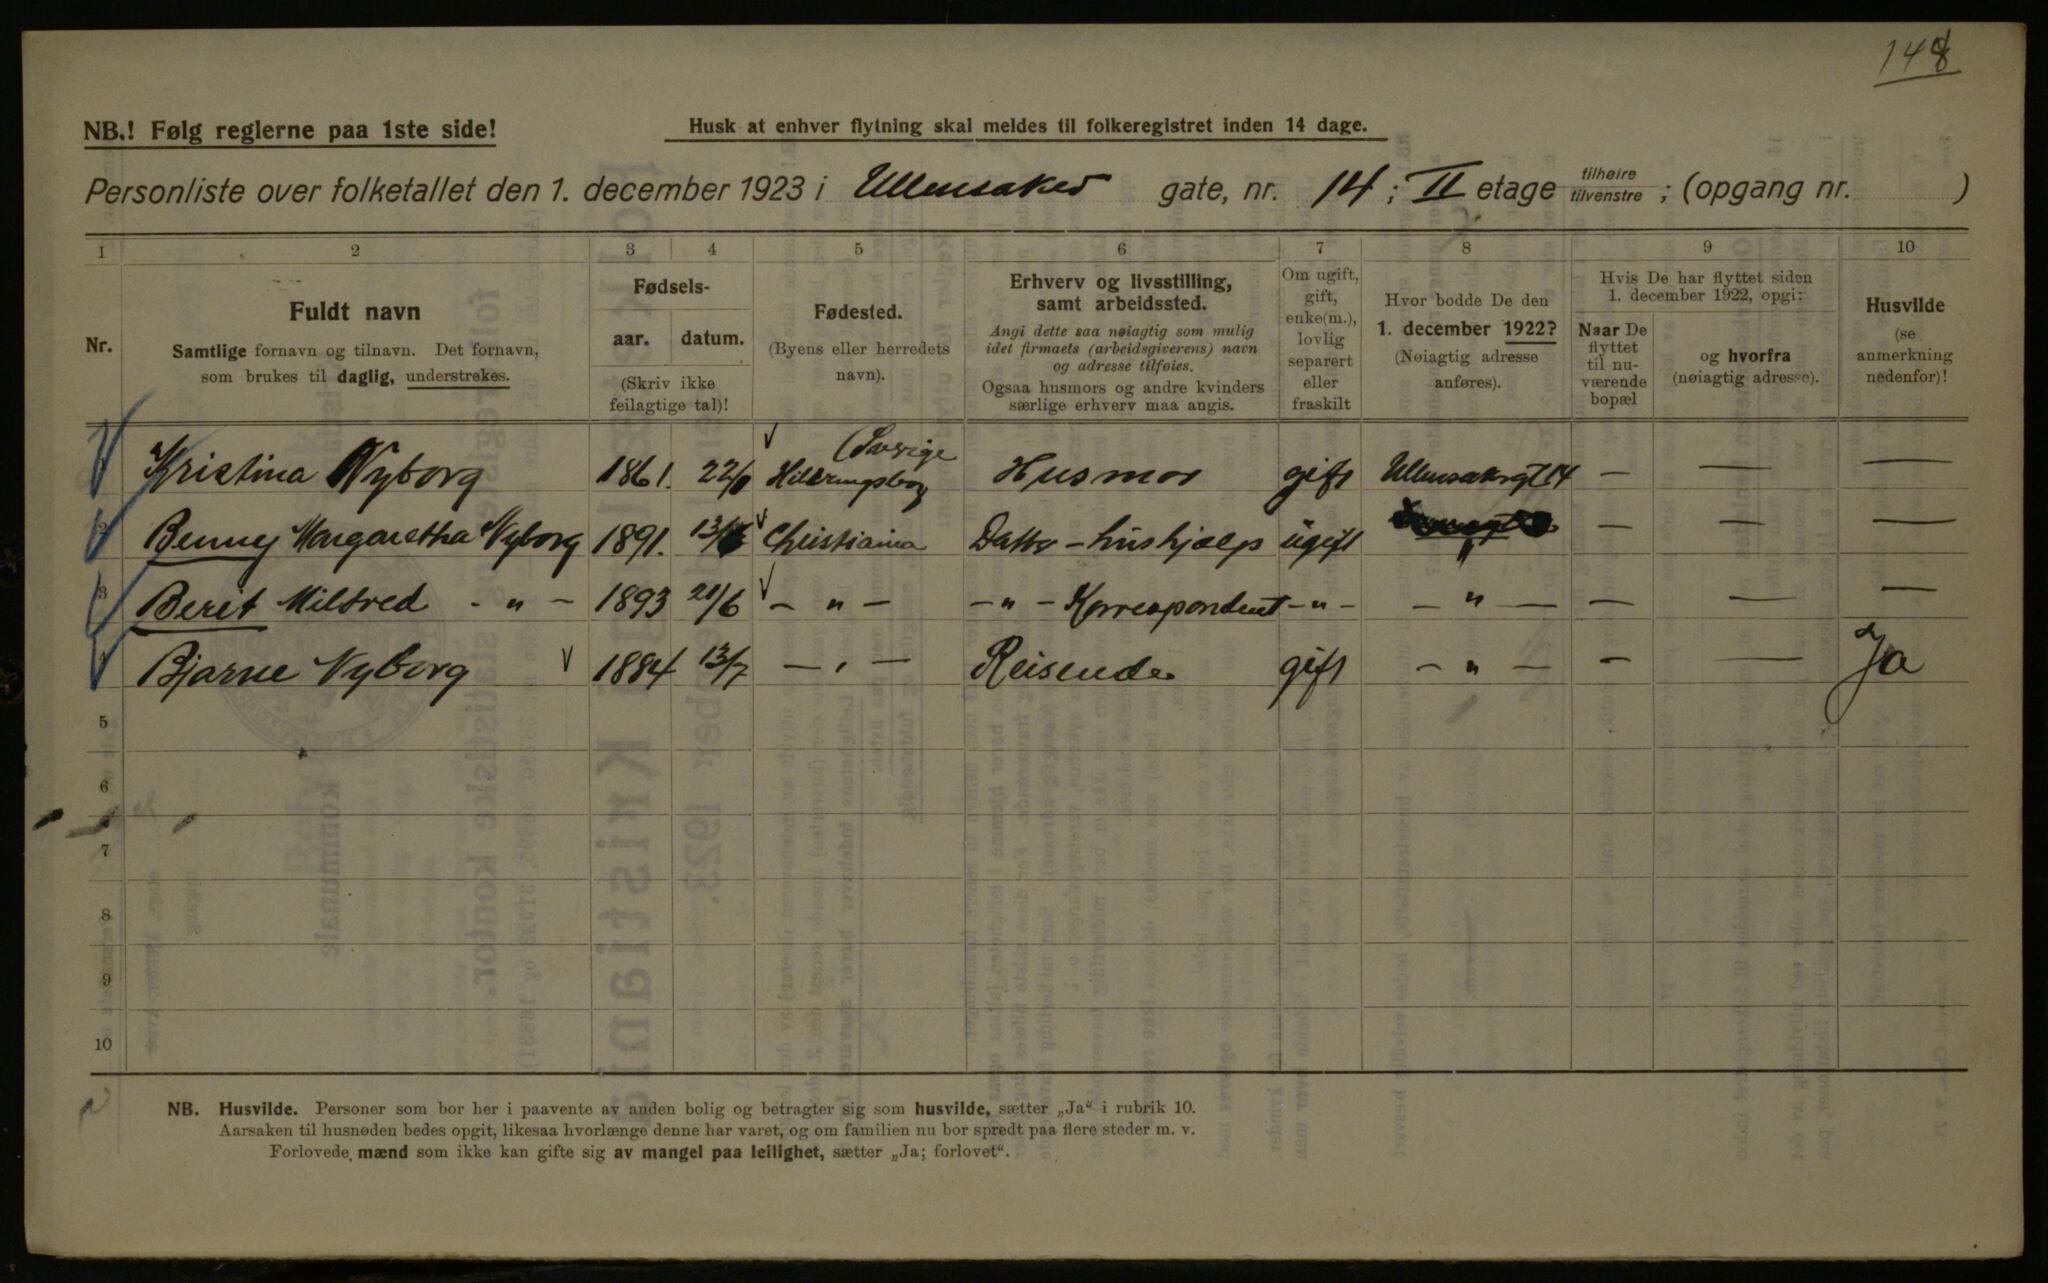 148
NB.! Følg reglerne paa 1ste side!
Husk at enhver flytning skal meldes til folkeregistret inden 14 dage.
Personliste over folketallet den 1. december 1923 i Ullensaker gate, nr. 14; II etage tilhøire tilvenstre; (opgang nr. )
1 2 3 4 5 6 7 8 9 10
Nr.
Fuldt navn
Samtlige fornavn og tilnavn. Det fornavn,
som brukes til daglig, understrekes.
Fødsels-
aar. datum.
(Skriv ikke
feilagtige tal)!
Fødested.
(Byens eller herredets
navn).
Erhverv og livsstilling,
samt arbeidssted.
Angi dette saa nøiagtig som mulig
idet firmaets (arbeidsgiverens) navn
og adresse tilføies.
Ogsaa husmors og andre kvinders
særlige erhverv maa angis.
Om ugift,
gift,
enke(m.),
lovlig
separert
eller
fraskilt
Hvor bodde De den
1. december 1922?
(Nøiagtig adresse
anføres).
Hvis De har flyttet siden
1. december 1922, opgi:
Naar De
flyttet
til nu-
værende
bopæl
og hvorfra
(nøiagtig adresse).
Husvilde
(se
anmerkning
nedenfor)!
Kristina Nyborg 1861. 22/ (Sverige Husmor gift Ullensakergt 14 — — —
2 Benny Margaretha Nyborg 1891. 13/ Christiania Datter - hushjælp ugift " — — —
3 Beret Mildred - " - 1893 21/6 - " - - " - Korrespondent - " - - " - — — —
4 Bjarne Nyborg 1884 13/7 - " - Reisende gift - " - — — Ja
5
6
7
8
9
10
NB. Husvilde. Personer som bor her i paavente av anden bolig og betragter sig som husvilde, sætter „Ja“ i rubrik 10.
Aarsaken til husnøden bedes opgit, likesaa hvorlænge denne har varet, og om familien nu bor spredt paa flere steder m. v.
Forlovede mænd som ikke kan gifte sig av mangel paa leilighet, sætter „Ja; forlovet“.